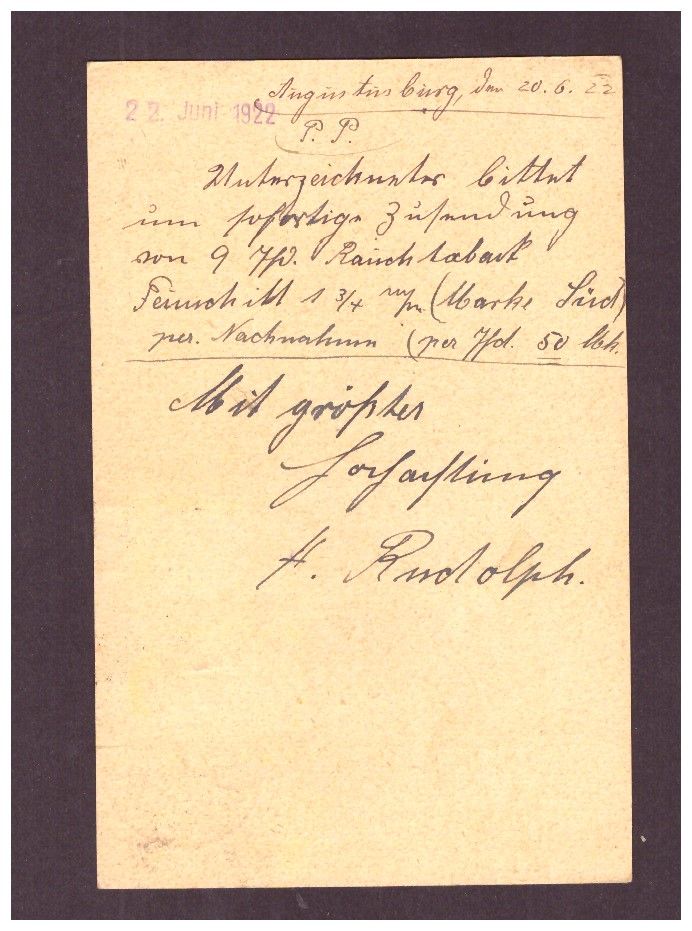 Augustusburg, den 20. 6. 22
22. Juni 1922
P. P.
Unterzeichneter bittet
um sofortige Zusendung
von 9 Pfd. Rauchtaback
Feinschitt 1 3/4 m/m (Marke Süd)
per. Nachnahme (per Pfd. 50 Mk.
Mit größter
Hochachtung
H. Rudolph.